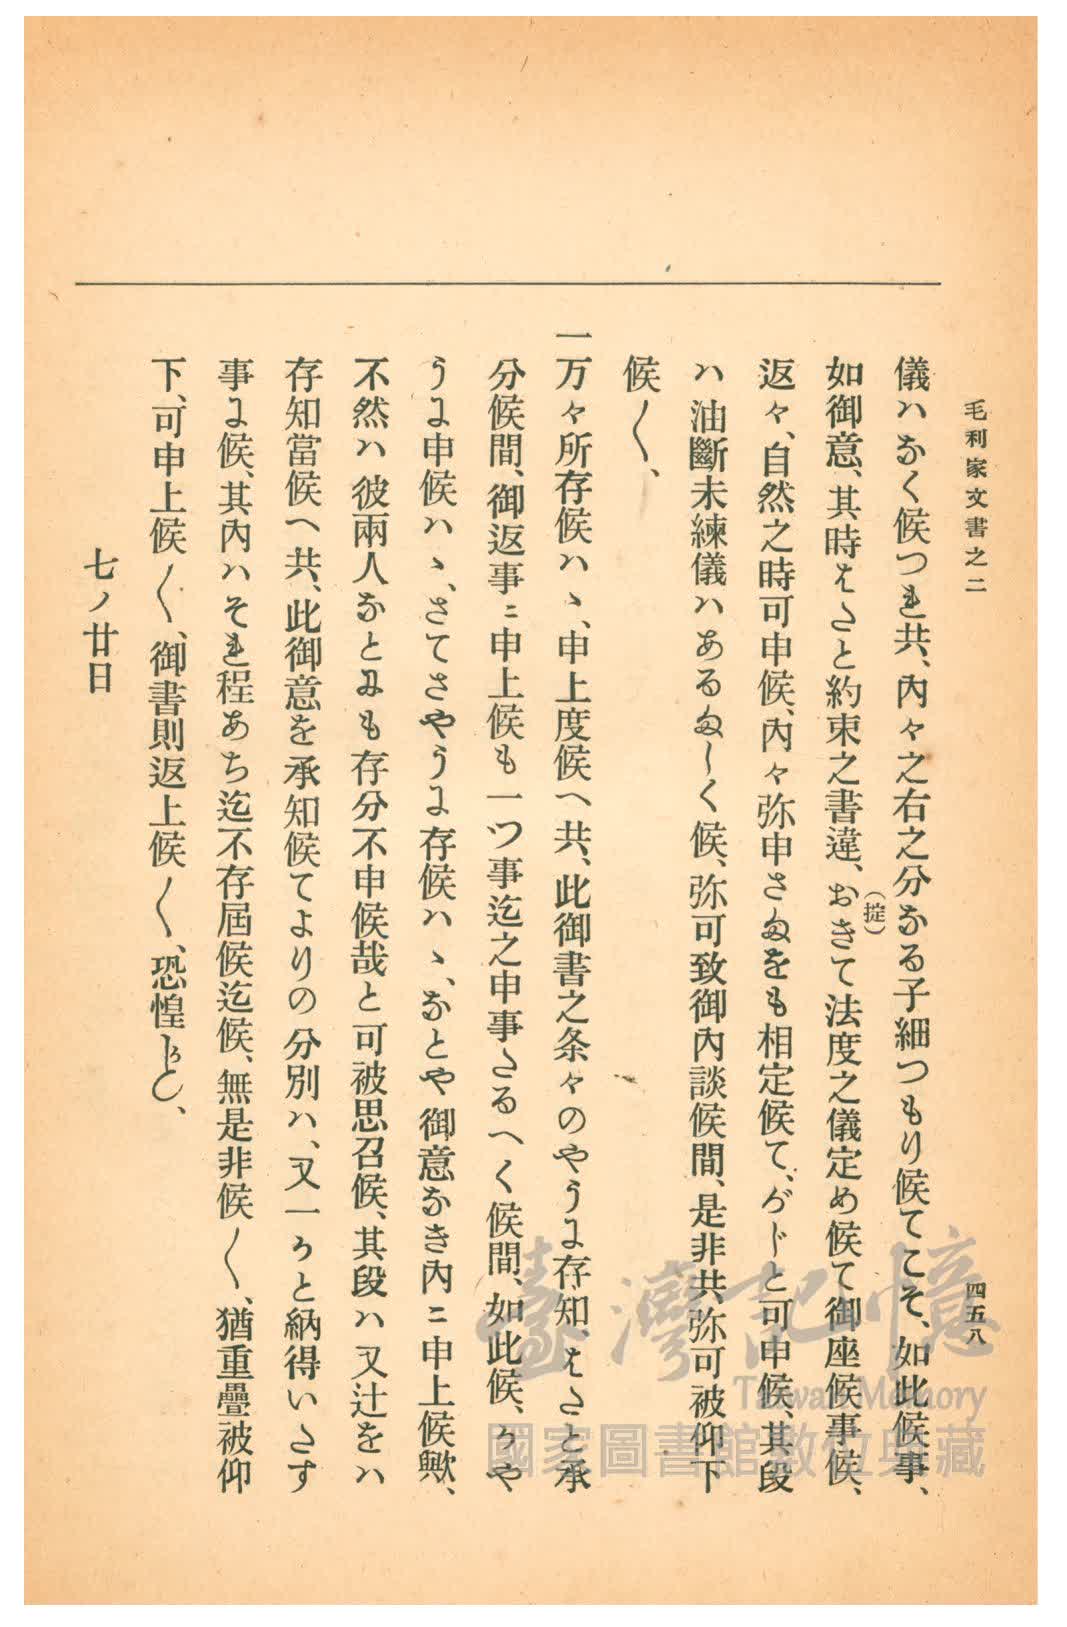 毛利家文書之二
四五八
儀ハなく候つれ共、內々之右之分なる子細つもり候てこそ、如此候事、
如御意、其時はたと約束之書違、おきて法度之儀定め候て御座候事候、
(掟)
返々、自然之時可申候、內々弥申さぬをも相定候て、がじと可申候、其段
ハ油斷未練儀ハあるましく候、弥可致御內談候間、是非共弥可被仰下
候〱、
一万々所存候ハヽ、申上度候へ共、此御書之条々のやうに存知、はたと承
分候間、御返事ニ申上候も一ツ事迄之申事たるへく候間、如此候、かや
うに申候ハヽ、さてさやうに存候ハヽ、なとや御意なき內ニ申上候歟、
不然ハ彼兩人なとにも存分不申候哉と可被思召候、其段ハ又辻をハ
存知當候へ共、此御意を承知候てよりの分別ハ、又一かと納得いたす
事に候、其內ハそれ程あち迄不存屆候迄候、無是非候〱、猶重疊被仰
下、可申上候〱、御書則返上候〱、恐惶かしく、
七ノ廿日
臺灣記憶
Taiwan Memory
國家圖書館數位典藏